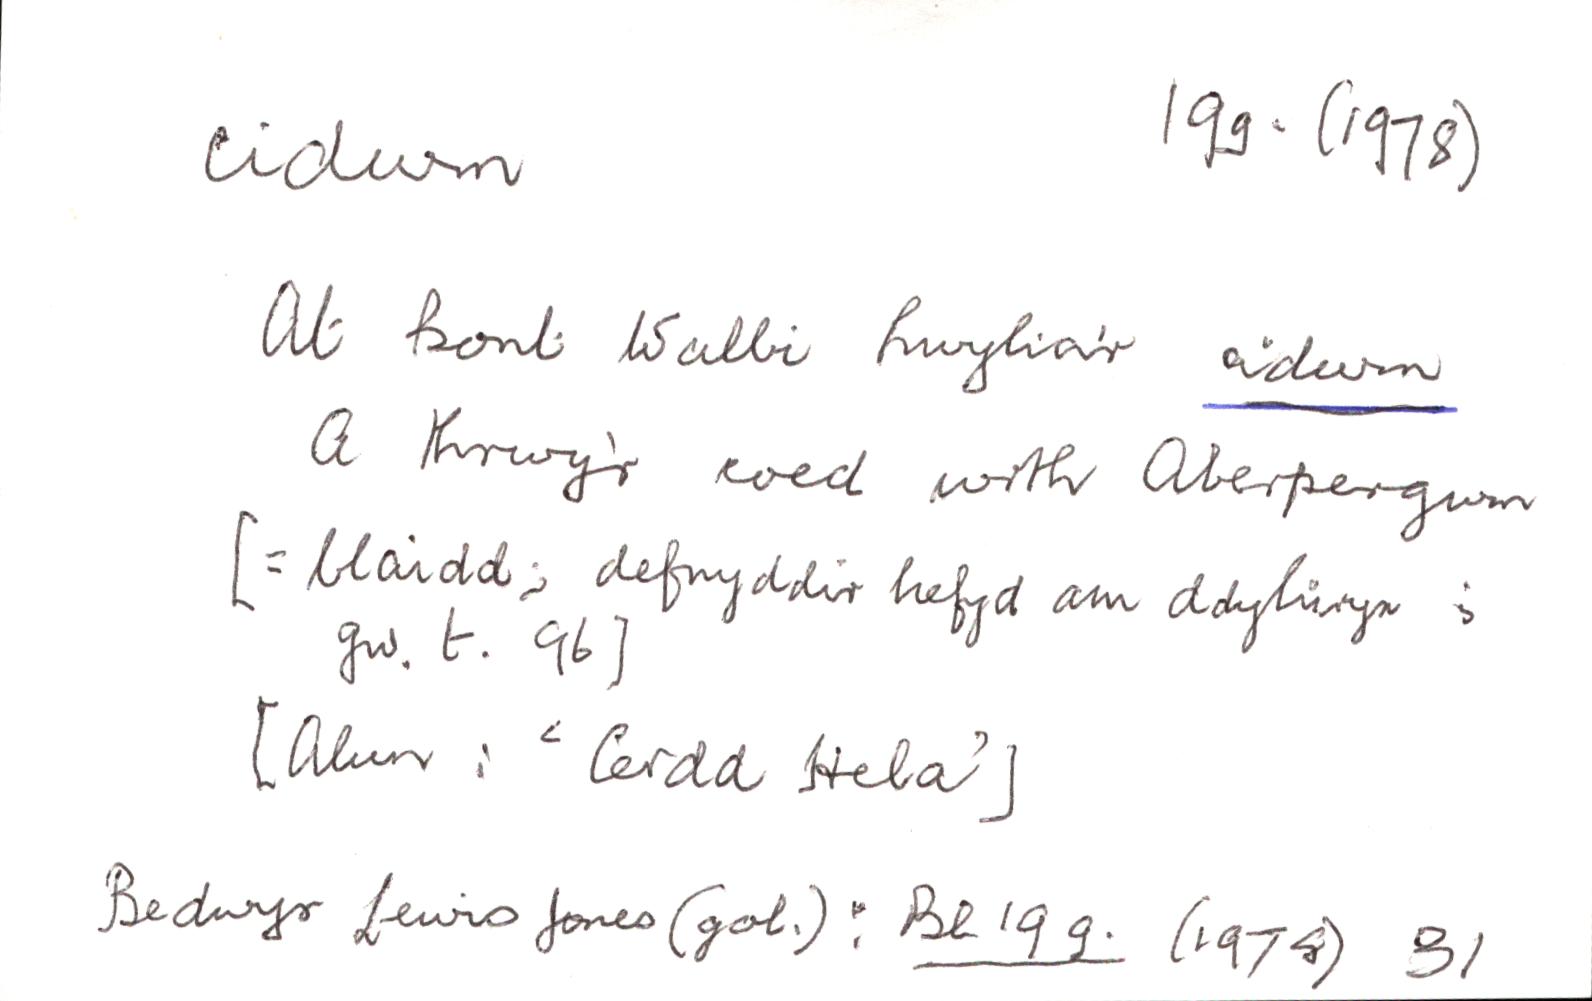 cidwm
19g. (1978)
At bont Walbi hwylia'r cidwm
A thrwy'r coed wrth Aberpergwm
[= blaidd; defnyddir hefyd am ddyhiryn;
gw. t. 96]
[Alun: 'Cerdd Hela']
Bedwyr Lewis Jones (gol.): Bl 19g. (1978) 31